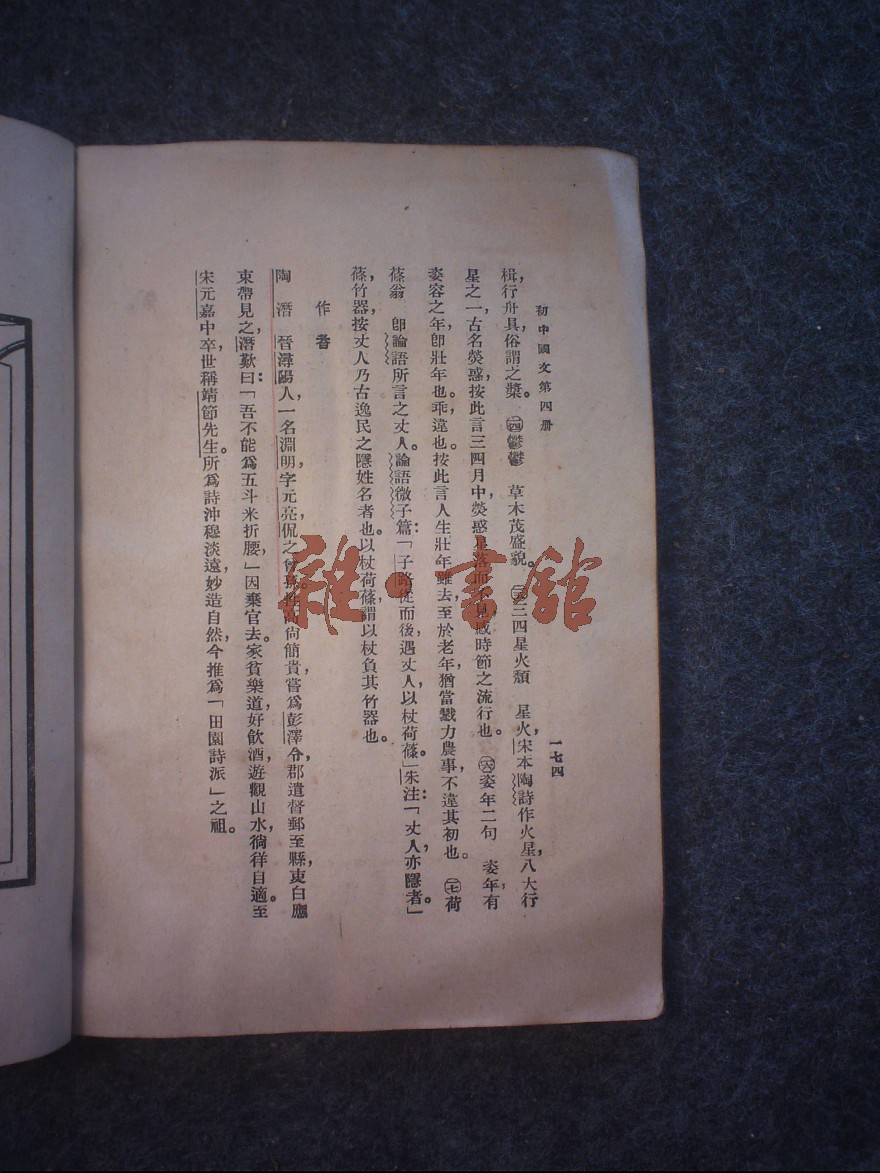 初中國文第四册
一七四
楫，行舟具，俗謂之槳。㊁㊃鬱鬱　草木茂盛貌。三四星火頹　星火，宋本陶詩作火星，八大行
星之一，古名熒惑，按此言三四月中，熒惑星落而不見，感時節之流行也。姿年二句　姿年，有
姿容之年，卽壯年也。乖，違也。按此言人生壯年雖去，至於老年，猶當戮力農事，不違其初也。荷
蓧翁　卽論語所言之丈人。論語微子篇：「子路從而後，遇丈人，以杖荷蓧。」朱注：「丈人，亦隱者。」
蓧，竹器，按丈人乃古逸民之隱姓名者也。以杖荷蓧，謂以杖負其竹器也。
作者
陶潛　晉潯陽人，一名淵明，字元亮，侃之曾孫。性高尚簡貴，嘗爲彭澤令，郡遣督郵至縣，吏白應
束帶見之，潛歎曰：「吾不能爲五斗米折腰，」因棄官去。家貧樂道，好飲酒，遊觀山水，徜徉自適。至
宋元嘉中卒，世稱靖節先生。所爲詩沖穆淡遠，妙造自然，今推爲「田園詩派」之祖。
雜·書館